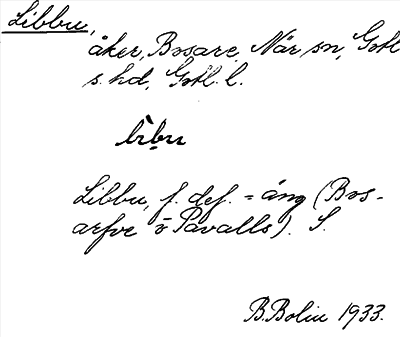 Libbu,
åker, Bosare, När sn, Gotl
s. hd, Gotl. l.
lìbu
Libbu, f. def. = äng (Bos-
arfve v Pavalls). S.
B. Bolin 1933.